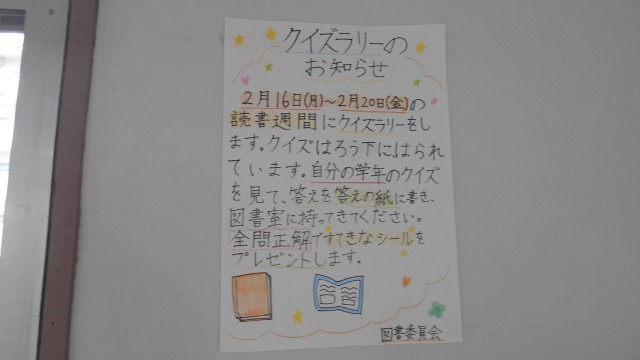 クイズラリーの
お知らせ
2月16日(月)~2月20日(金)の
読書週間にクイズラリーをし
ます。クイズはろう下にはられ
ています。自分の学年のクイズ
を見て、答えを答えの紙に書き、
図書室に持ってきてください。
全問正解ですてきなシールを
プレゼントします。
図書委員会